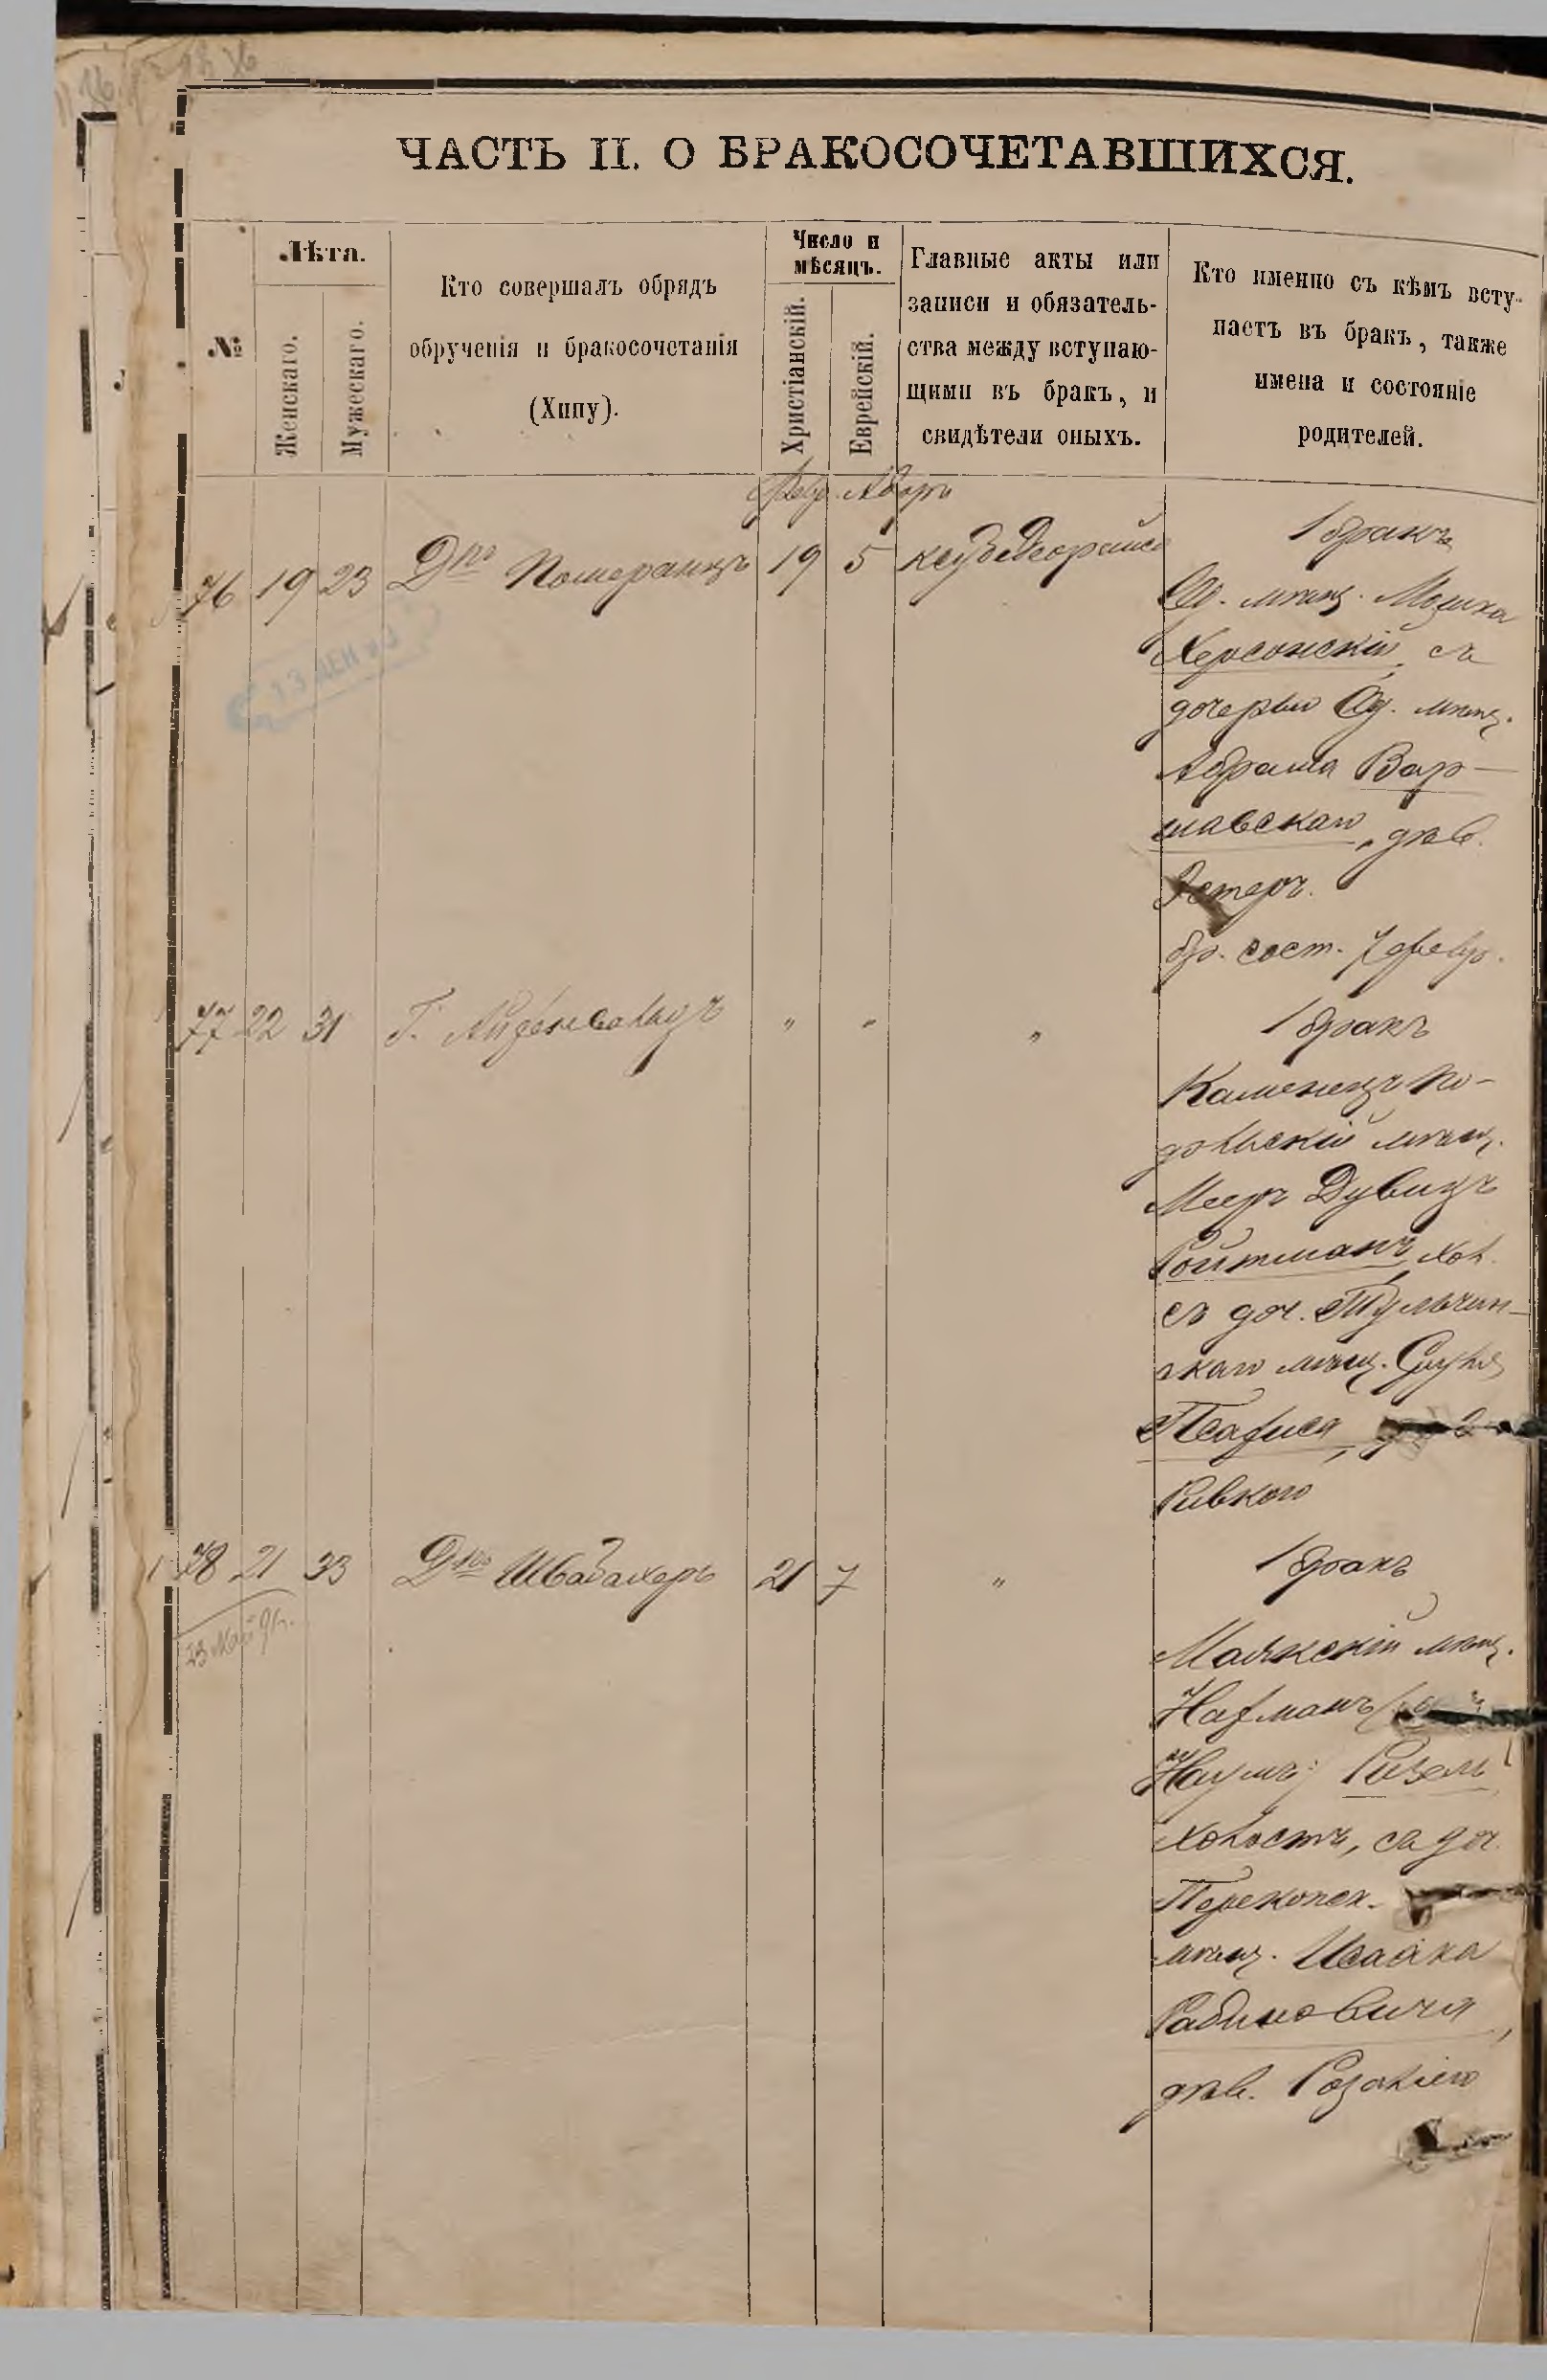 ЧАСТЬ II. О БРАКОСОЧЕТАВШИХСЯ.
№
Лѣта.
Женскаго.
Мужескаго.
Кто совершалъ обрядъ
обрученія и бракосочетанія
(Хипу).
Число и
мѣсяцъ.
Христіанскій.
Еврейскій.
Главные акты или
записи и обязатель-
ства между вступаю-
щими въ бракъ, и
свидѣтели оныхъ.
Кто именно съ кѣмъ всту-
паетъ въ бракъ, также
имена и состояніе
родителей.
Февр. Адаръ
76 19 23 Дръ Померанцъ 19 5
1 бракъ
Од. мѣщ. Мошка
Херсонскій, съ
дочерью Од. мѣщ.
Абрама Вар-
шавскаго, дѣв.
Эстеръ.
бр. сост. 7 февр.
77 22 31 Г. Айзенвальдъ " " "
1 бракъ
Каменецъ По-
дольскій мѣщ.
Мееръ Дувидъ
Ройтманъ, хол.
съ доч. Тульчин-
скаго мѣщ. Сруля
Ривкою
78 21 33 Дръ Швабахеръ 21 7 "
23 Мая 91 г.
1 бракъ
Маякскій мѣщ.
Нахманъ
Наумъ) Ризель
холостъ, съ доч.
Перекопск.
мѣщ. Исаака
Рабиновича,
дѣв. Розалією